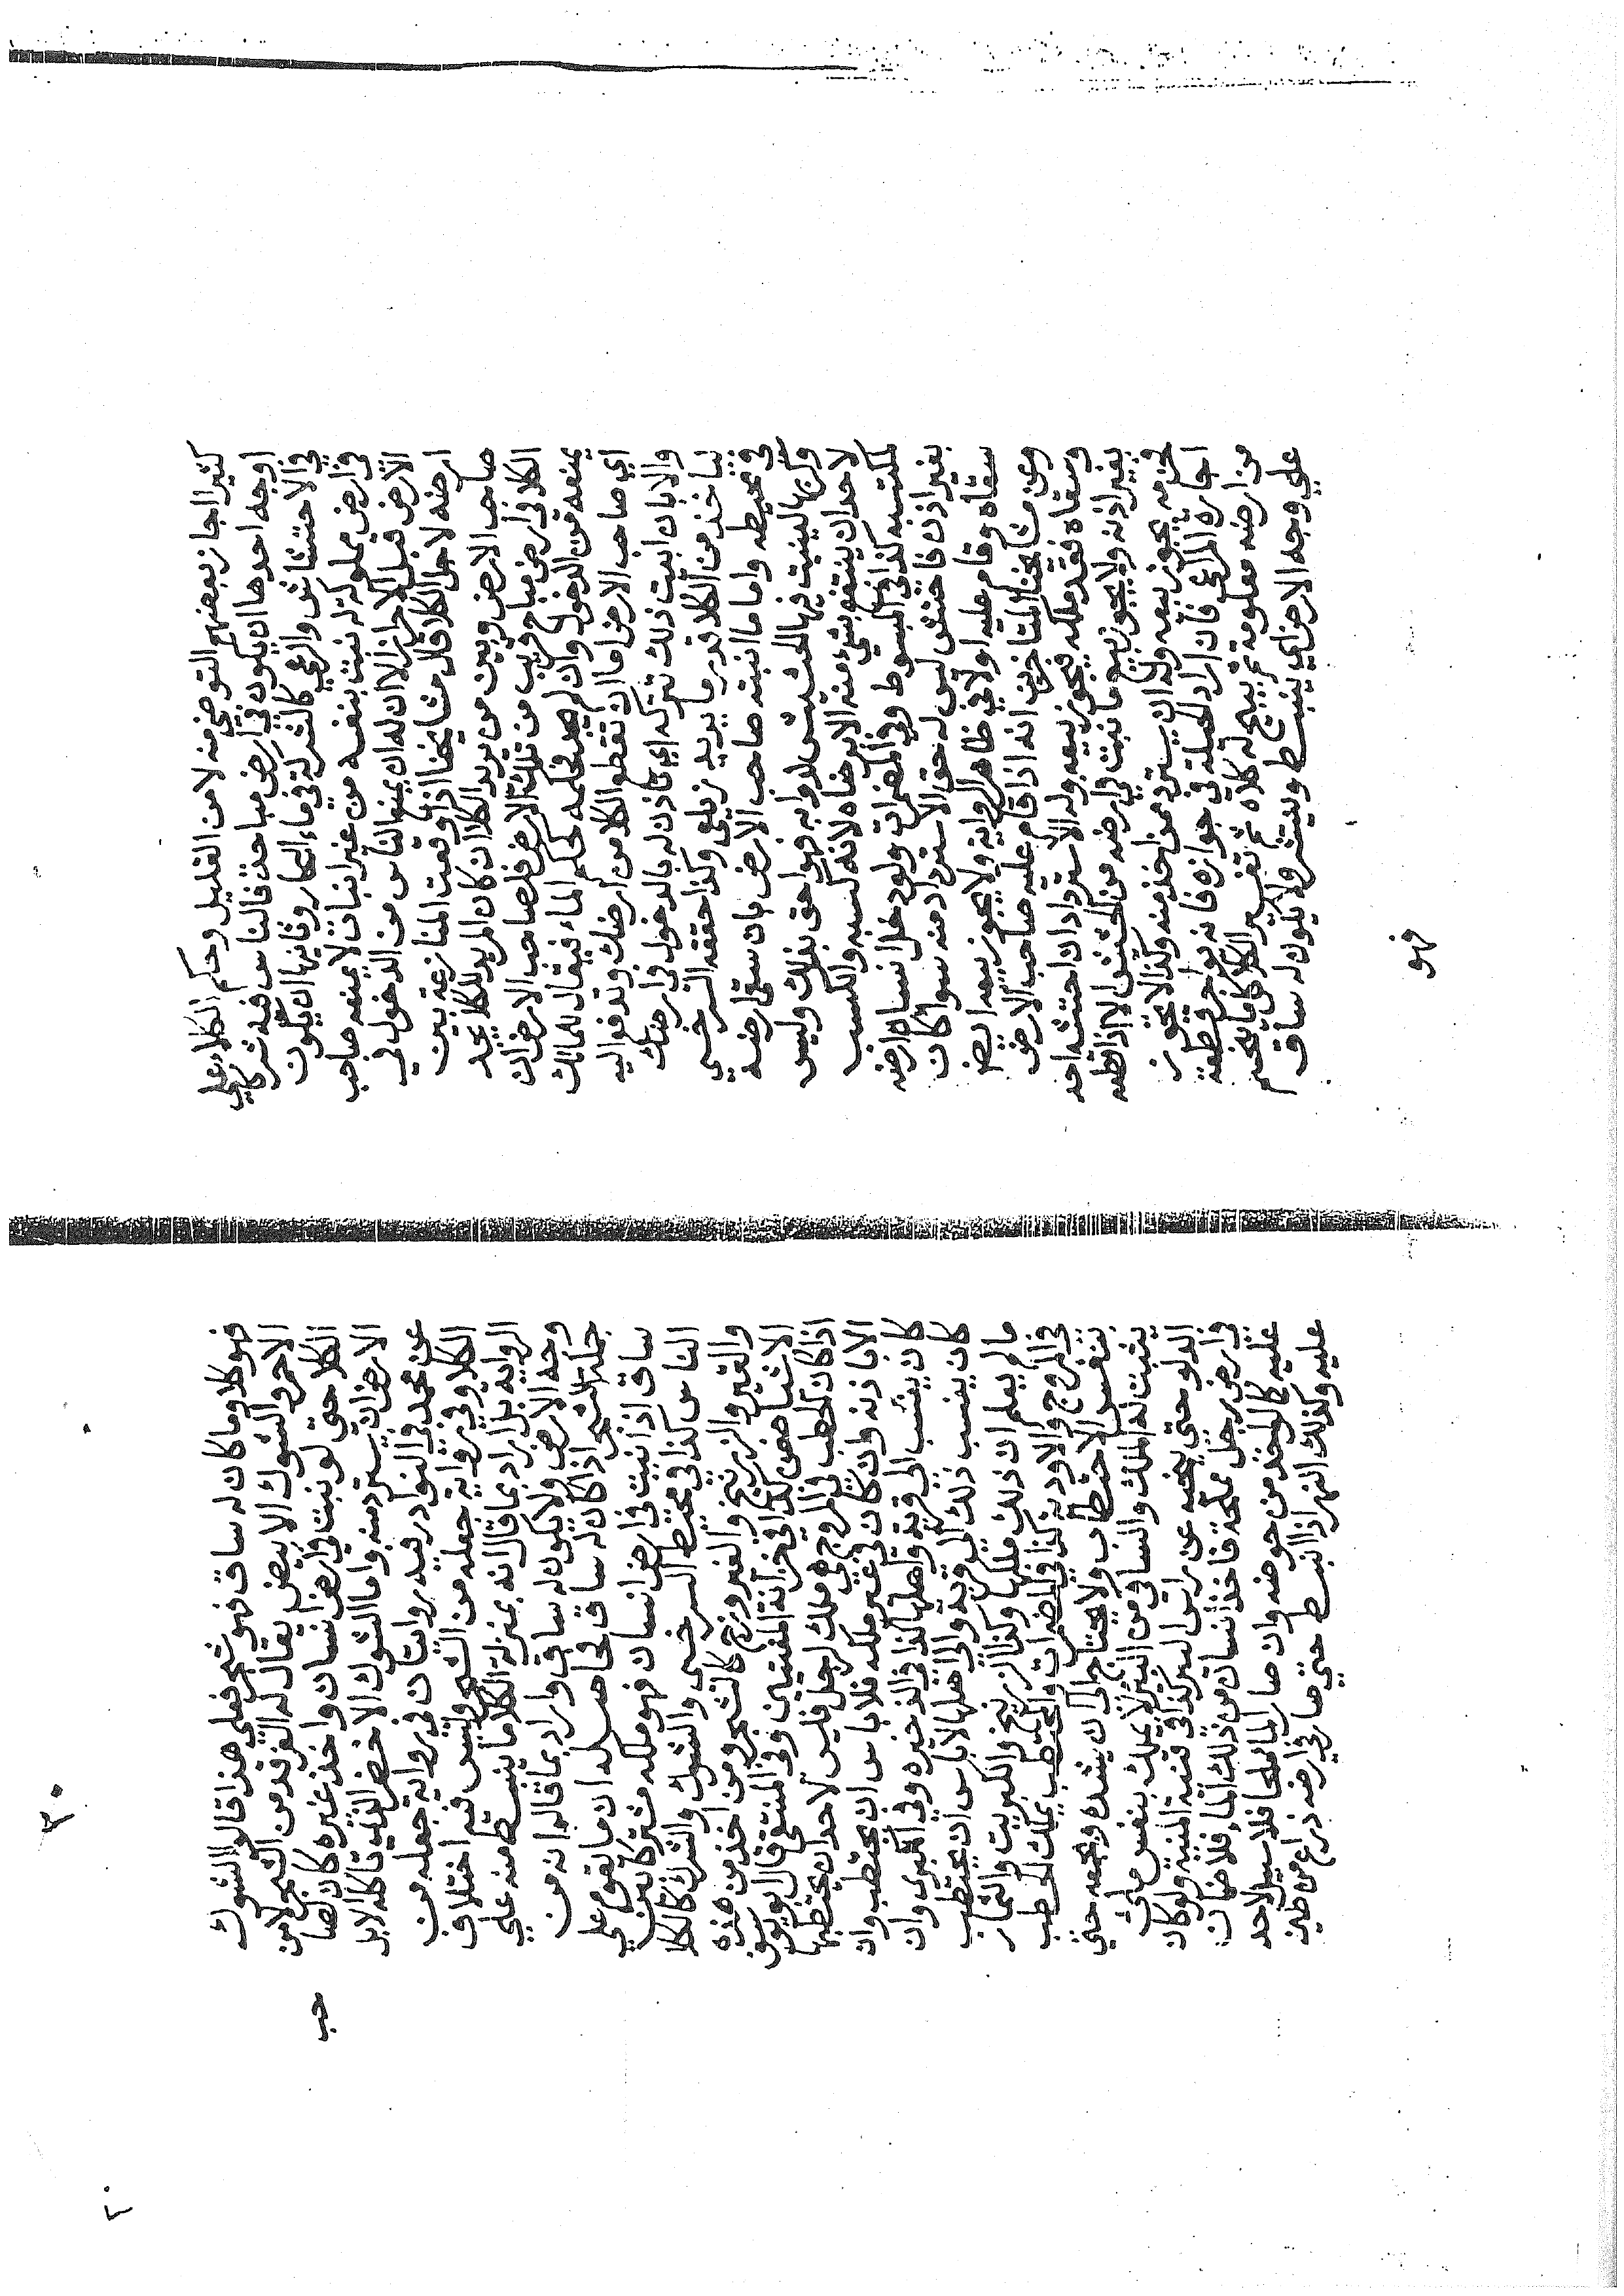 كثيرا جاز بعضهم التوضي منه لا من القليل وحكم الكلاء علي
اوجه احدها ان يكون في ارض مباحة فالناس فيه شركا
في الاحتشاش والرعي كالشركة في ماء البحار وثانيها ان يكون
في ارض مملوكة له نبت بنفسه من غير انبات لا يمنعه صاحب
الارض قبل الاحراز الا ان له ان يمنع الناس من الدخول في
ارضه لاجل الكلا قال مشايخنا اذا وقعت المنازعة بين
صاحب الارض وبين من يريد الكلا ان كان المريد للكلا يجد
الكلا في ارض مباح قريب من تلك الارض فلصاحب الارض ان
يمنعه من الدخول وان لم يجد فحكمه حكم الماء فيقال للمالك
اي صاحب الارض اما ان تقطع الكلا من ارضك وتدفع اليه
والا بان ابيت ذلك تتركه اي تاذن له بالدخول في ارضك
لياخذ من الكلا قدر ما يريد زيلعي وكذا حققه السرخسي
في محيطه واما ما انبته صاحب الارض بان سقى ارضه
وكربها لينبت فيها الحشيش لدوابه فهو احق بذلك وليس
لاحد ان ينتفع بشيء منه الا برضاه لانه كسبه والكسب
للمكتسب كذا في المبسوط وفي المضمرات ولو دخل انسان ارضه
بغير اذن فاحتش ليس له حق الاسترداد منه سوا كان
سقاه وقام عليه اولا في ظاهر الرواية ولا يجوز بيعه ايضا
وعن مشايخنا المتاخرين انه اذا قام عليه صاحب الارض
وسقاه فقد ملكه فيجوز بيعه وله الاسترداد ان احتشه احد
بغير اذنه ولا يجوز بيع ما نبت في ارضه من الحشيش الا اذا قطعه
حزمه يجوز بيعه وله ان يسترد ممن اخذ منه وكذا لا يجوز
اجارة المراعي فان اراد الحيلة في جوازه فانه يواجر قطعة
من ارضه معلومة ثم يبيح له كلاه ثم تفسير الكلا كل ما ينجم
علي وجه الارض اي ينبسط وينتشر ولا يكون له ساق
فهو
٣٠
فهو كلا وما كان له ساق فهو شجر فعلي هذا قالوا الشوك
الاحمر والشوك الابيض يقال له الغرقد من الشجر لا من
الكلا حتي لو نبت في ارض انسان واخذ غيره كان لصا
حب
الارض ان يسترد منه واما الشوك الاخضر الذي تاكله الابل
عن محمد في النوادر فيه روايتان في رواية جعله من
الكلا وفي رواية جعله من الشجر وليس فيه اختلاف
الرواية بل اراد بما قال انه بمنزلة الكلا ما ينبسط منه علي
وجه الارض ولا يكون له ساق واراد بما قاله انه من
جملة الشجر اذا كان له ساق فحاصله ان ما يقوم علي
ساق اذا نبت في ارض انسان فهو ملكه مشتركا بين
الناس كذا في محيط السرخسي والشوك والشرك كالكلا
والقير والزرنيخ والفيروزج كالشجر ومن اخذ من هذه
الاشيا ضمن كذا في خزانة المفتين وفي المنتقى قال ابو يوسف
اذا كان الحطب في المروج هي ملك لرجل فليس لاحد ان يحتطبها
الا باذنه وان كان في غير ملكه فلا باس ان يحتطب وان
كان ينسب الي قرية واهلها كذا في الذخيره وفي الكبرى وان
كان ينسب ذلك الي قرية والي اهلها لا باس ان يحتطب
ما لم يعلم ان ذلك ملكها وكذا الزرنيخ والكبريت والثمار
في المروج والاودية كذا في المضمرات والمحتطب يملك الحطب
بنفس الاحتطاب ولا يحتاج الي ان يشده ويجمعه حتي
يثبت له الملك والساقي من البير لا يملك بنفس ملئ
الدلو حتي ينحيه عن راس البير كذا في قنية المنية ولو كان
في ارض رجل مملحة فاخذ انسان من ذلك الماء فلا ضمان
عليه كالو اخذ من حوضه وان صار الما ملحا فلا سبيل لاحد
عليه وكذلك النهر اذا انبسط حتي صار في ارضه ذراع من طين